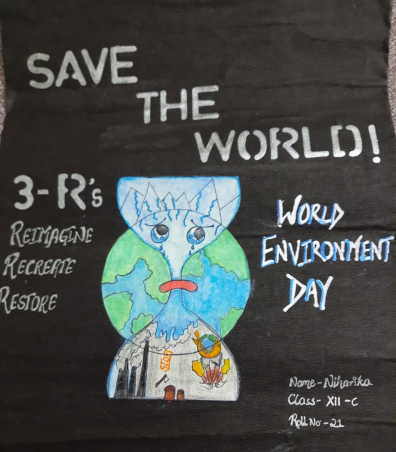 SAVE
THE
WORLD!
3-R's
REIMAGINE
RECREATE
RESTORE
WORLD
ENVIRONMENT
DAY
Name - Niharika
Class - XII - C
Roll No - 21